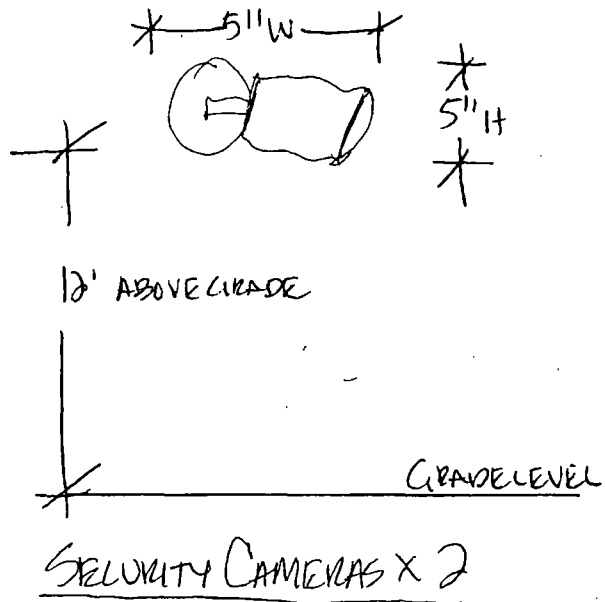 5" W
5" H
12' ABOVE GRADE
GRADE LEVEL
SECURITY CAMERAS X 2